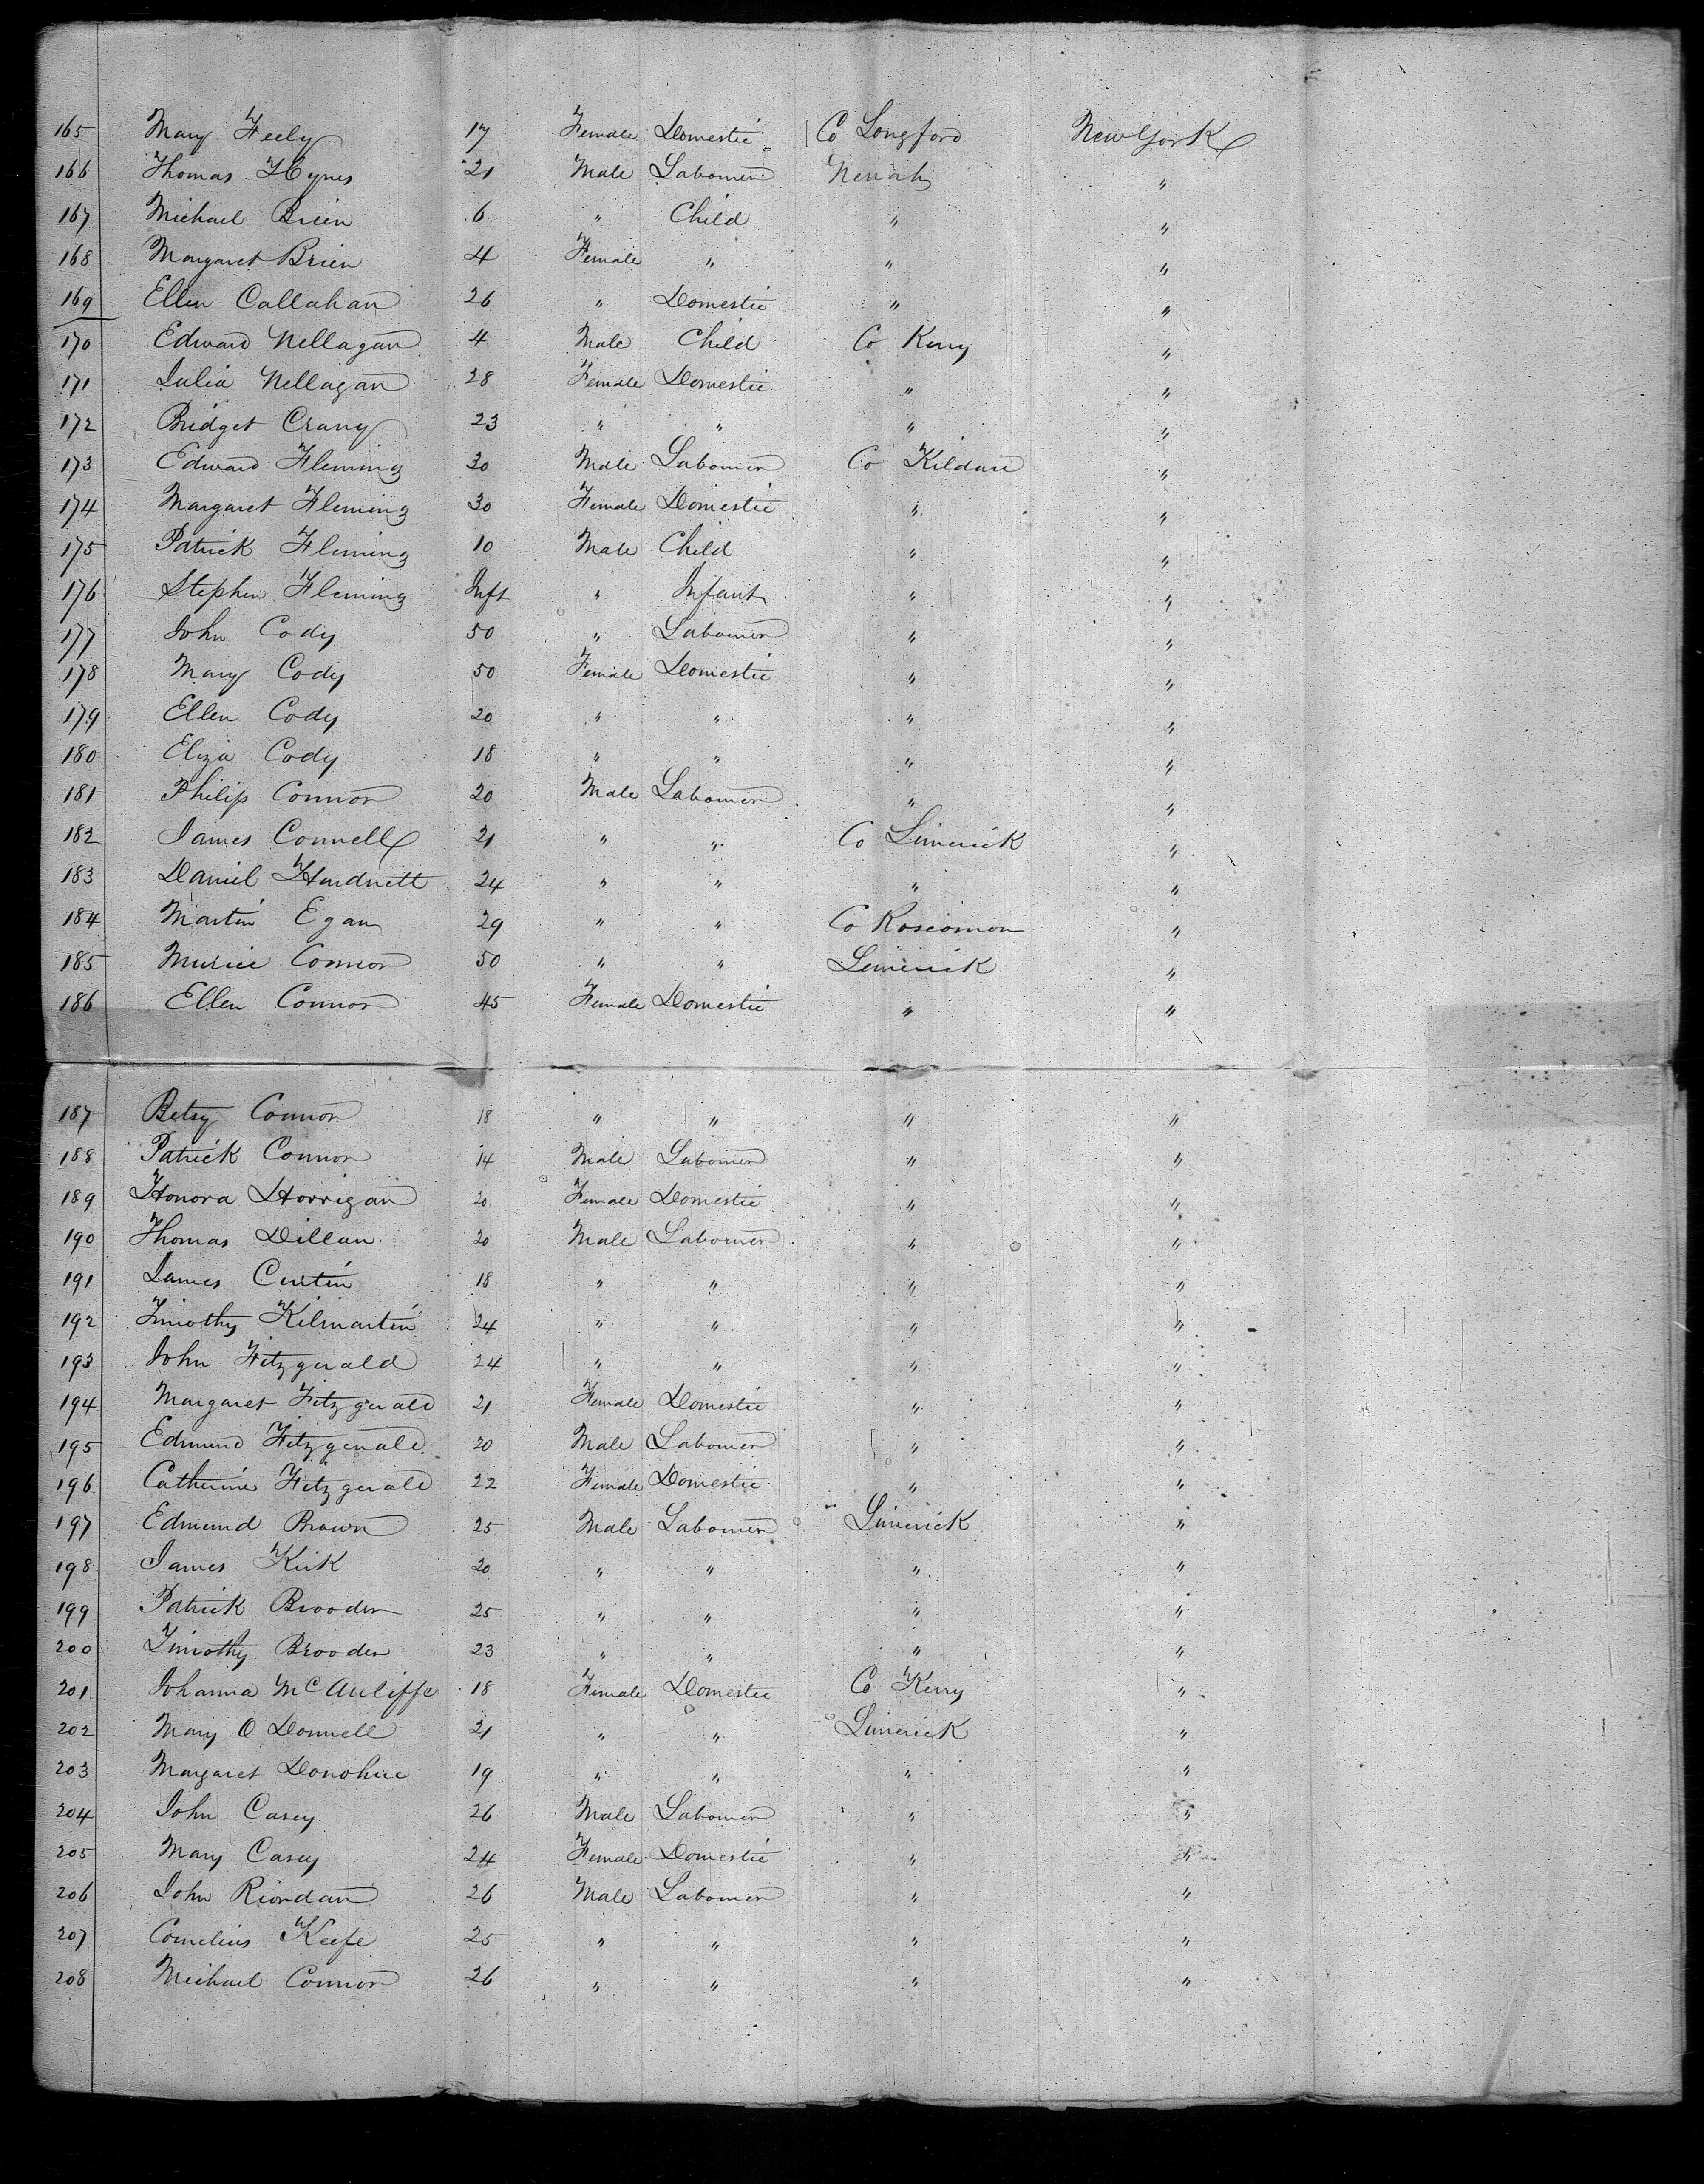 165 Mary Feely 17 Female Domestic Co Longford New York
166 Thomas Hynes 21 Male Labourer Nenah "
167 Michael Brien 6 " Child " "
168 Margaret Brien 4 Female " " "
169 Ellen Callahan 26 " Domestic " "
170 Edward Nellagan 4 Male Child Co Kerry "
171 Julia Nellagan 28 Female Domestic " "
172 Bridget Crany 23 " " " "
173 Edward Fleming 30 Male Labourer Co Kildare "
174 Margaret Fleming 30 Female Domestic " "
175 Patrick Fleming 10 Male Child " "
176 Stephen Fleming Inft " Infant " "
177 John Cody 50 " Labourer " "
178 Mary Cody 50 Female Domestic " "
179 Ellen Cody 20 " " " "
180 Eliza Cody 18 " " " "
181 Philip Connor 20 Male Labourer " "
182 James Connell 21 " " Co Limerick "
183 Daniel Hardnett 24 " " " "
184 Martin Egan 29 " " Co Roscomon "
185 Murice Connor 50 " " Limerick "
186 Ellen Connor 45 Female Domestic " "
187 Betsy Connor 18 " " " "
188 Patrick Connor 14 Male Labourer " "
189 Honora Horrigan 20 Female Domestic " "
190 Thomas Dillan 20 Male Labourer " "
191 James Curtin 18 " " " "
192 Timothy Kilmartin 24 " " " "
193 John Fitzgerald 24 " " " "
194 Margaret Fitzgerald 21 Female Domestic " "
195 Edmund Fitzgerald 20 Male Labourer " "
196 Catherine Fitzgerald 22 Female Domestic " "
197 Edmund Brown 25 Male Labourer Limerick "
198 James Kirk 20 " " " "
199 Patrick Brooder 25 " " " "
200 Timothy Brooder 23 " " " "
201 Johanna McAuliffe 18 Female Domestic Co Kerry "
202 Mary O Donnell 21 " " Limerick "
203 Margaret Donohue 19 " " " "
204 John Casey 26 Male Labourer " "
205 Mary Casey 24 Female Domestic " "
206 John Riordan 26 Male Labourer " "
207 Cornelius Keefe 25 " " " "
208 Michael Connor 26 " " " "